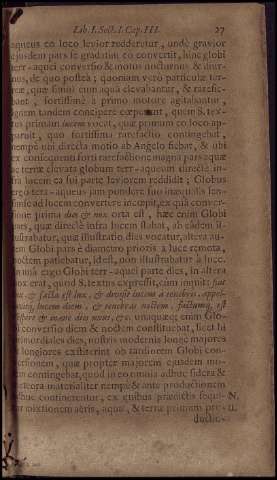 Lib. I. Sect. I. Cap. III. 27
aqueus eo loco levior redderetur, undè gravior
ejusdem pars se gradatim eo convertit, hinc globi
terr-aquei conversio & motus nocturnus & diur-
nus, de quo posteà; quoniam verò particulæ ter-
reæ, quæ simul cum aquâ elevabantur, & rarefie-
bant, fortissimè à primo motore agitabantur,
ignem tandem concipere cœperunt, quem S. tex-
tus primam lucem vocat, quæ primum eo loco ap-
paruit, quo fortissima rarefactio contingebat,
nempè ubi directa motio ab Angelo fiebat, & ubi
ex consequenti forti rarefactione magna pars aquæ
ac terræ elevata globum terr-aqueum directè in-
fra lucem ex sui parte leviorem reddidit; Globus
ergo terr-aqueus jam pondere suo inæqualis len-
simse ad lucem convertere incœpit, ex quâ conver-
sione prima dies & nox orta est, hæc enim Globi
pars, quæ directè infra lucem stabat, ab eâdem il-
lustrabatur, quæ illustratio dies vocatur, altera au-
tem Globi pars è diametro prioris à luce remota,
noctem patiebatur, id est, non illustrabatur à luce.
In unâ ergo Globi terr-aquei parte dies, in altera
nox erat, quod S. textus expressit, cum inquit: fiat
lux, & facta est lux, & divisit lucem à tenebris, appel-
lavitq; lucem diem, & tenebras noctem, factumq; est
vespere & mane dies unus, &c. unaquæq; enim Glo-
bi conversio diem & noctem constituebat, licet hi
primordiales dies, nostris modernis longè majores
& longiores exstiterint ob tardiorem Globi con-
versionem, quæ propter majorem ejusdem mo-
lem contingebat, quod in eo omnia adhuc sidera &
meteora materialiter nempè & ante productionem
adhuc continerentur, ex quibus præmissis sequi- N.
tur mixtionem aëris, aquæ, & terræ primam pro- 11.
ductio-